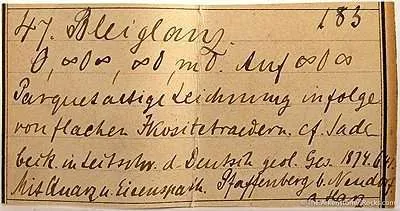 47. Bleiglanz. 183
O, ∞O∞, ∞O, mO. Auf ∞O∞
Parquetartige Zeichnung in folge
von flachen Ikositetraedern. cf. Sade-
beck in Zeitschr. d. Deutsch. geol. Ges. 1874.
Mit Quarz u. Eisenspath. Pfaffenberg b. Neudorf